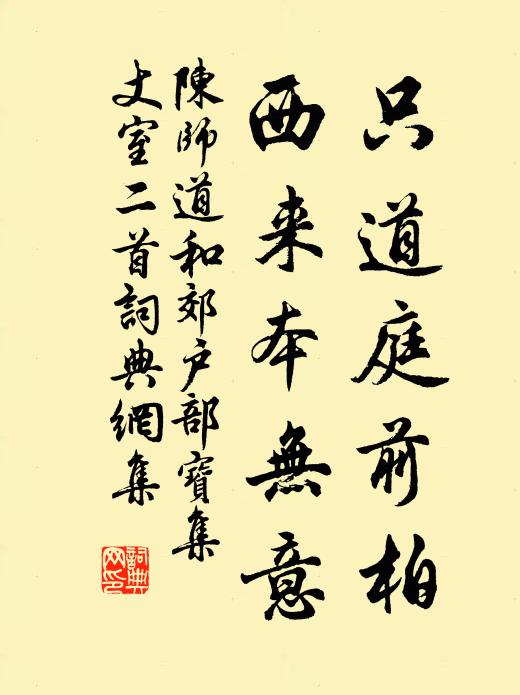 只道庭前柏
西来本無意
陳師道和郊户部寶集
丈室二首詞典網集
詞典
网印